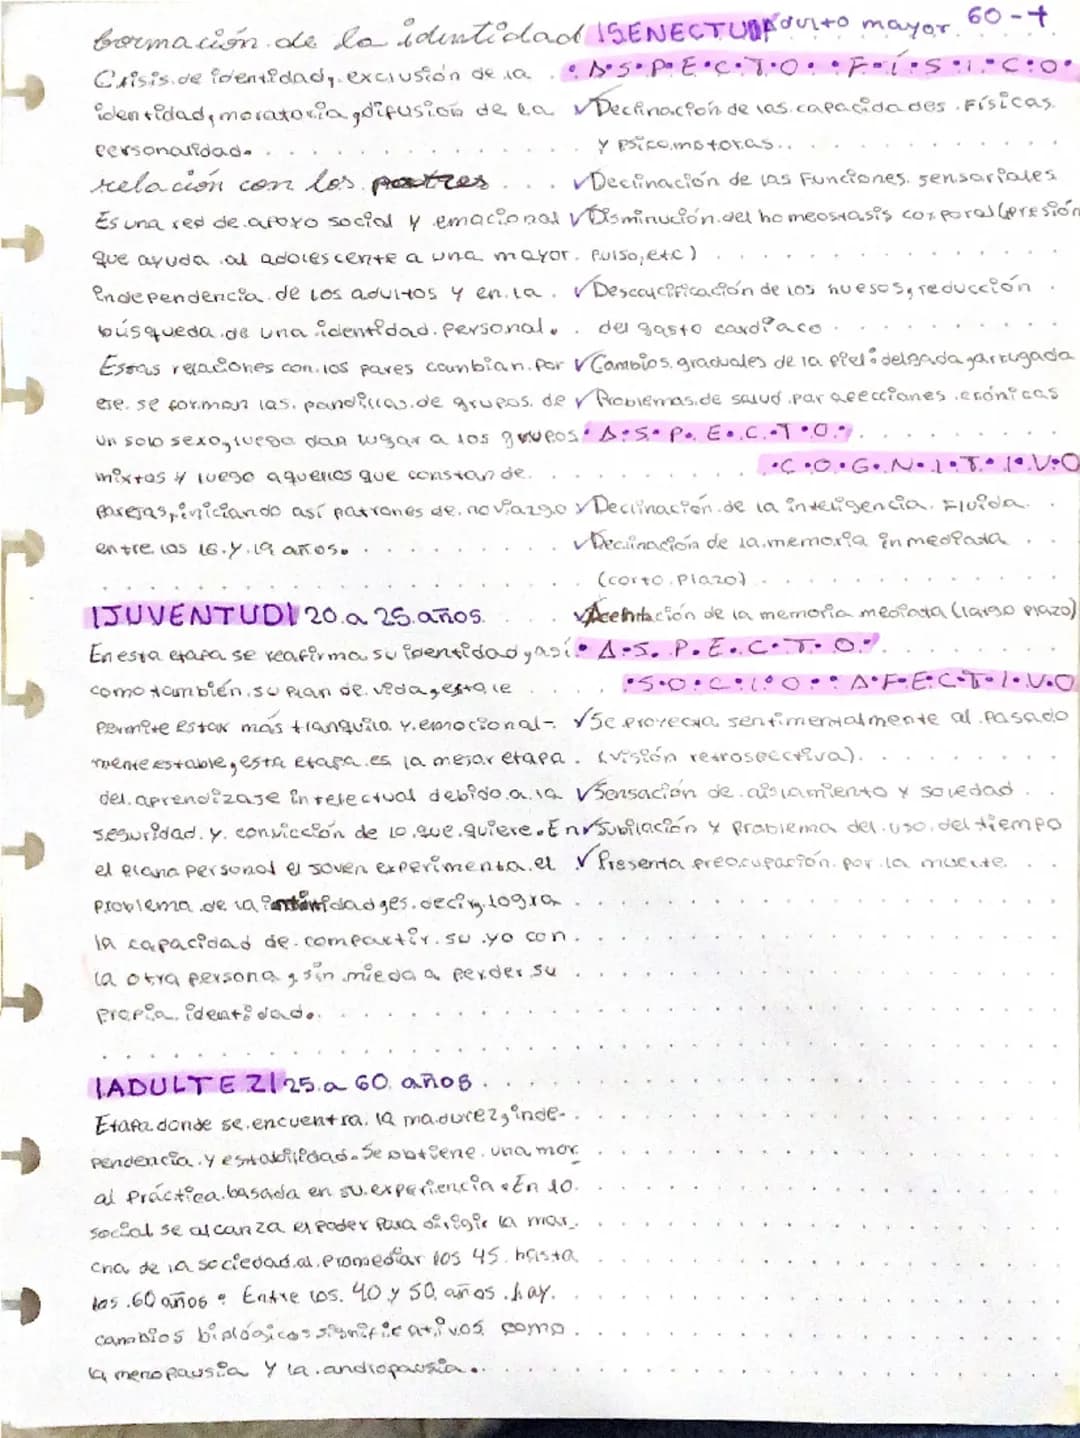 formación de la identidad
Crisis de identidad, exclusión de la
identidad, moratoria, difusión de la
personalidad.
relación con los
Es una red de apoyo social y emocional
que ayuda al adolescente a una mayor
independencia de los adultos y en la
búsqueda de una identidad personal.
Estas relaciones con los pares cambian. Por
ese se forman las pandillas de grupos de
un solo sexo, luego dan lugar a los grupos
mixtos y luego aquellos que constan de
parejas, iniciando así patrones de noviazgo
entre los 16 y 19 años.
|JUVENTUD| 20 a 25 años
En esta etapa se reafirma su identidad, así
como también su plan de vida, esto le
permite estar más tranquilo y emocional-
mente estable, esta etapa es la mejor etapa
del aprendizaje intelectual debido a la
seguridad y convicción de lo que quiere. En
el plano personal el joven experimenta el
problema de la intimidad, es decir, logra
la capacidad de compartir su yo con
la otra persona, sin miedo a perder su
propia identidad.
|ADULTEZ| 25 a 60 años
Etapa donde se encuentra la madurez, inde-
pendencia y estabilidad. Se obtiene una mor
al práctica basada en su experiencia. En lo
social se alcanza el poder para dirigir la mar
cha de la sociedad al promediar los 45 hasta
los 60 años. Entre los 40 y 50 años hay
cambios biológicos significativos como
la menopausia y la andropausia.
|SENECTUD| Adulto mayor 60 - +
• A•S•P•E•C•T•O• •F•Í•S•I•C•O•
✓Declinación de las capacidades físicas
y psicomotoras.
✓Declinación de las funciones sensoriales
✓Disminución del homeostasis corporal (presión
pulso, etc)
✓Descalcificación de los huesos, reducción
del gasto cardíaco
✓Cambios graduales de la piel: delgada, arrugada
✓Problemas de salud par afecciones crónicas
• A•S•P•E•C•T•O•
•C•O•G•N•I•T•I•V•O
✓Declinación de la inteligencia Fluida.
✓Declinación de la memoria inmediata
(corto plazo)
✓ de la memoria mediata (largo plazo)
• A•S•P•E•C•T•O•
•S•O•C•I•O•• A•F•E•C•T•I•V•O
✓Se proyecta sentimentalmente al pasado
(visión retrospectiva).
✓Sensación de aislamiento y soledad
✓Jubilación y problema del uso del tiempo
✓Presenta preocupación por la muerte